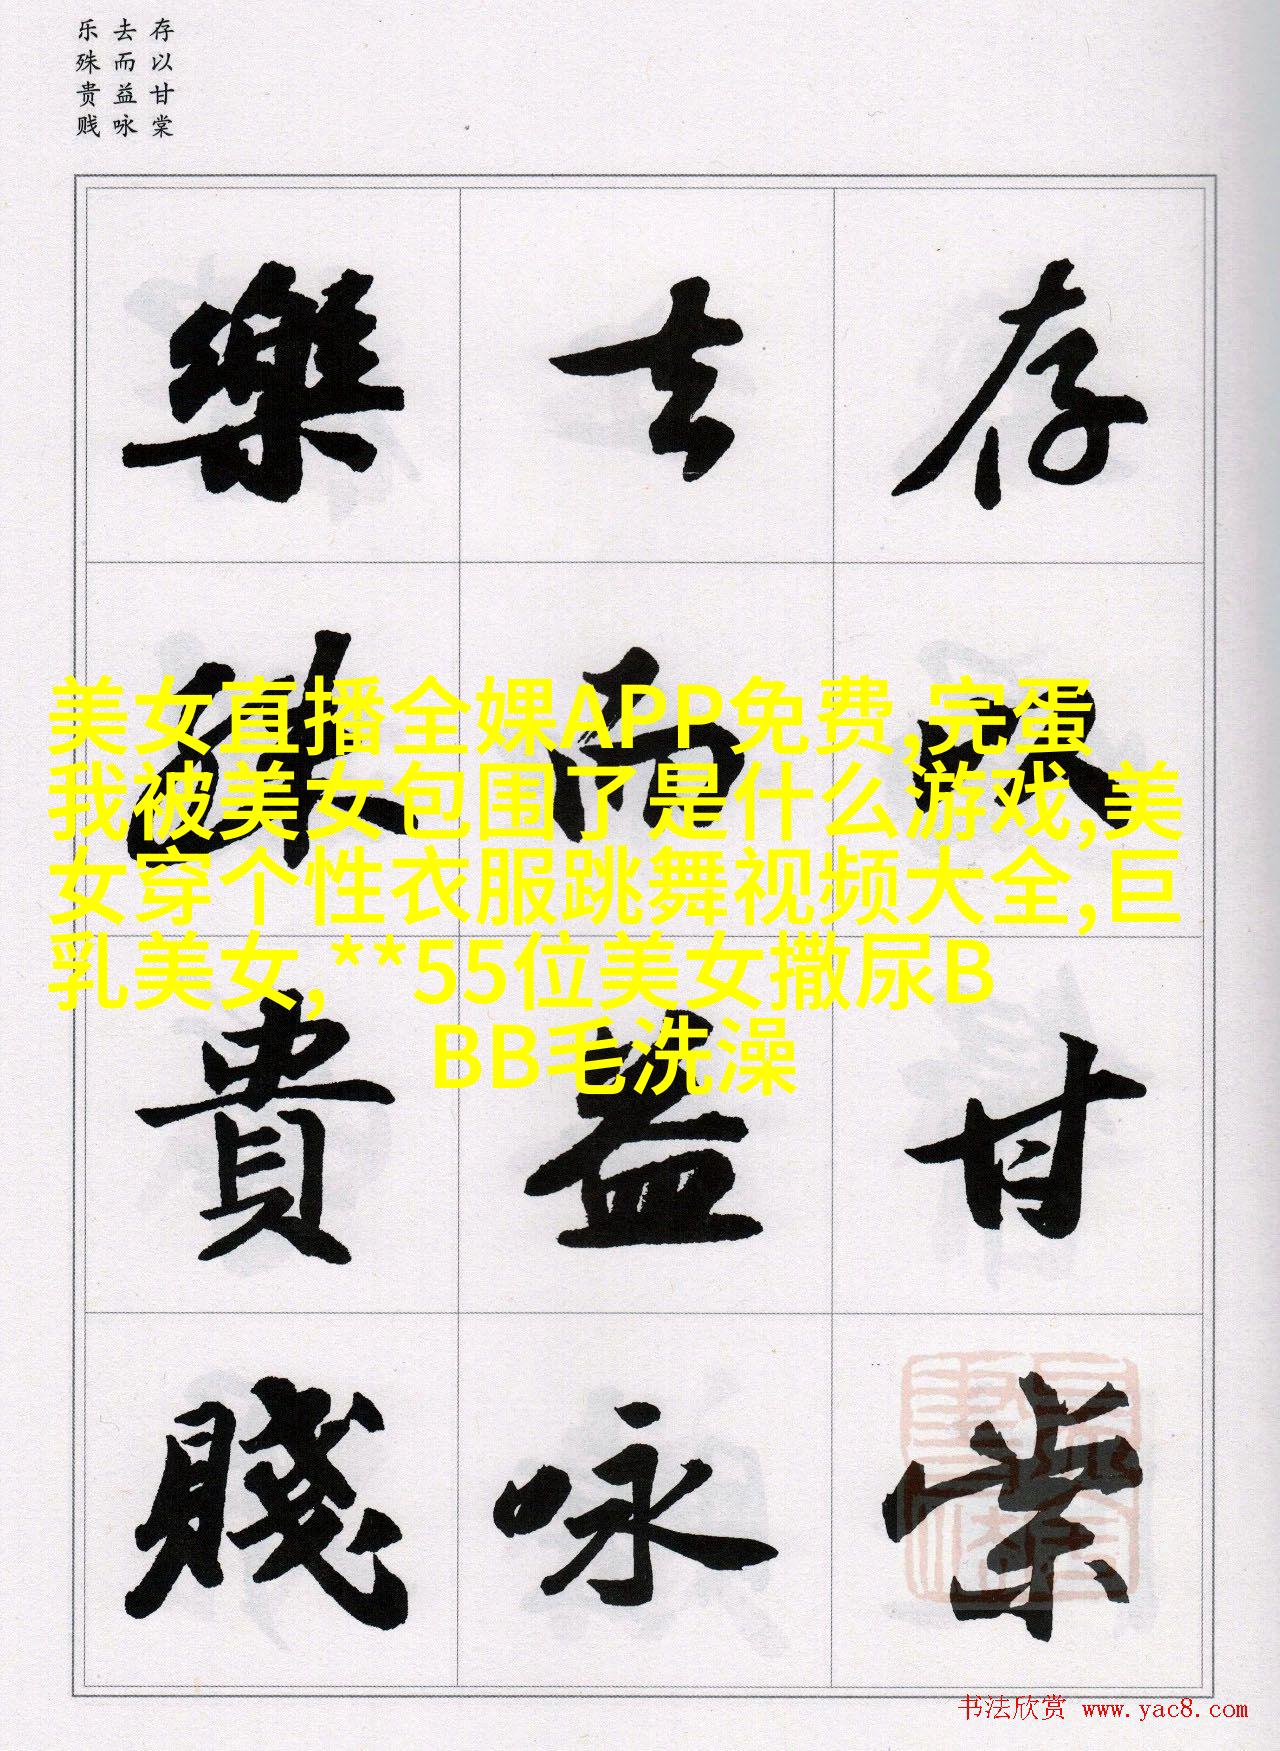 存以甘棠
去而益咏
乐殊贵贱
存以甘棠
去而益咏
樂殊貴賤
美女直播全婐APP免费,完蛋
我被美女包围了是什么游戏,美
女穿个性衣服跳舞视频大全,巨
乳美女,**55位美女撒尿B
BB毛洗澡
书法欣赏 www.yac8.com